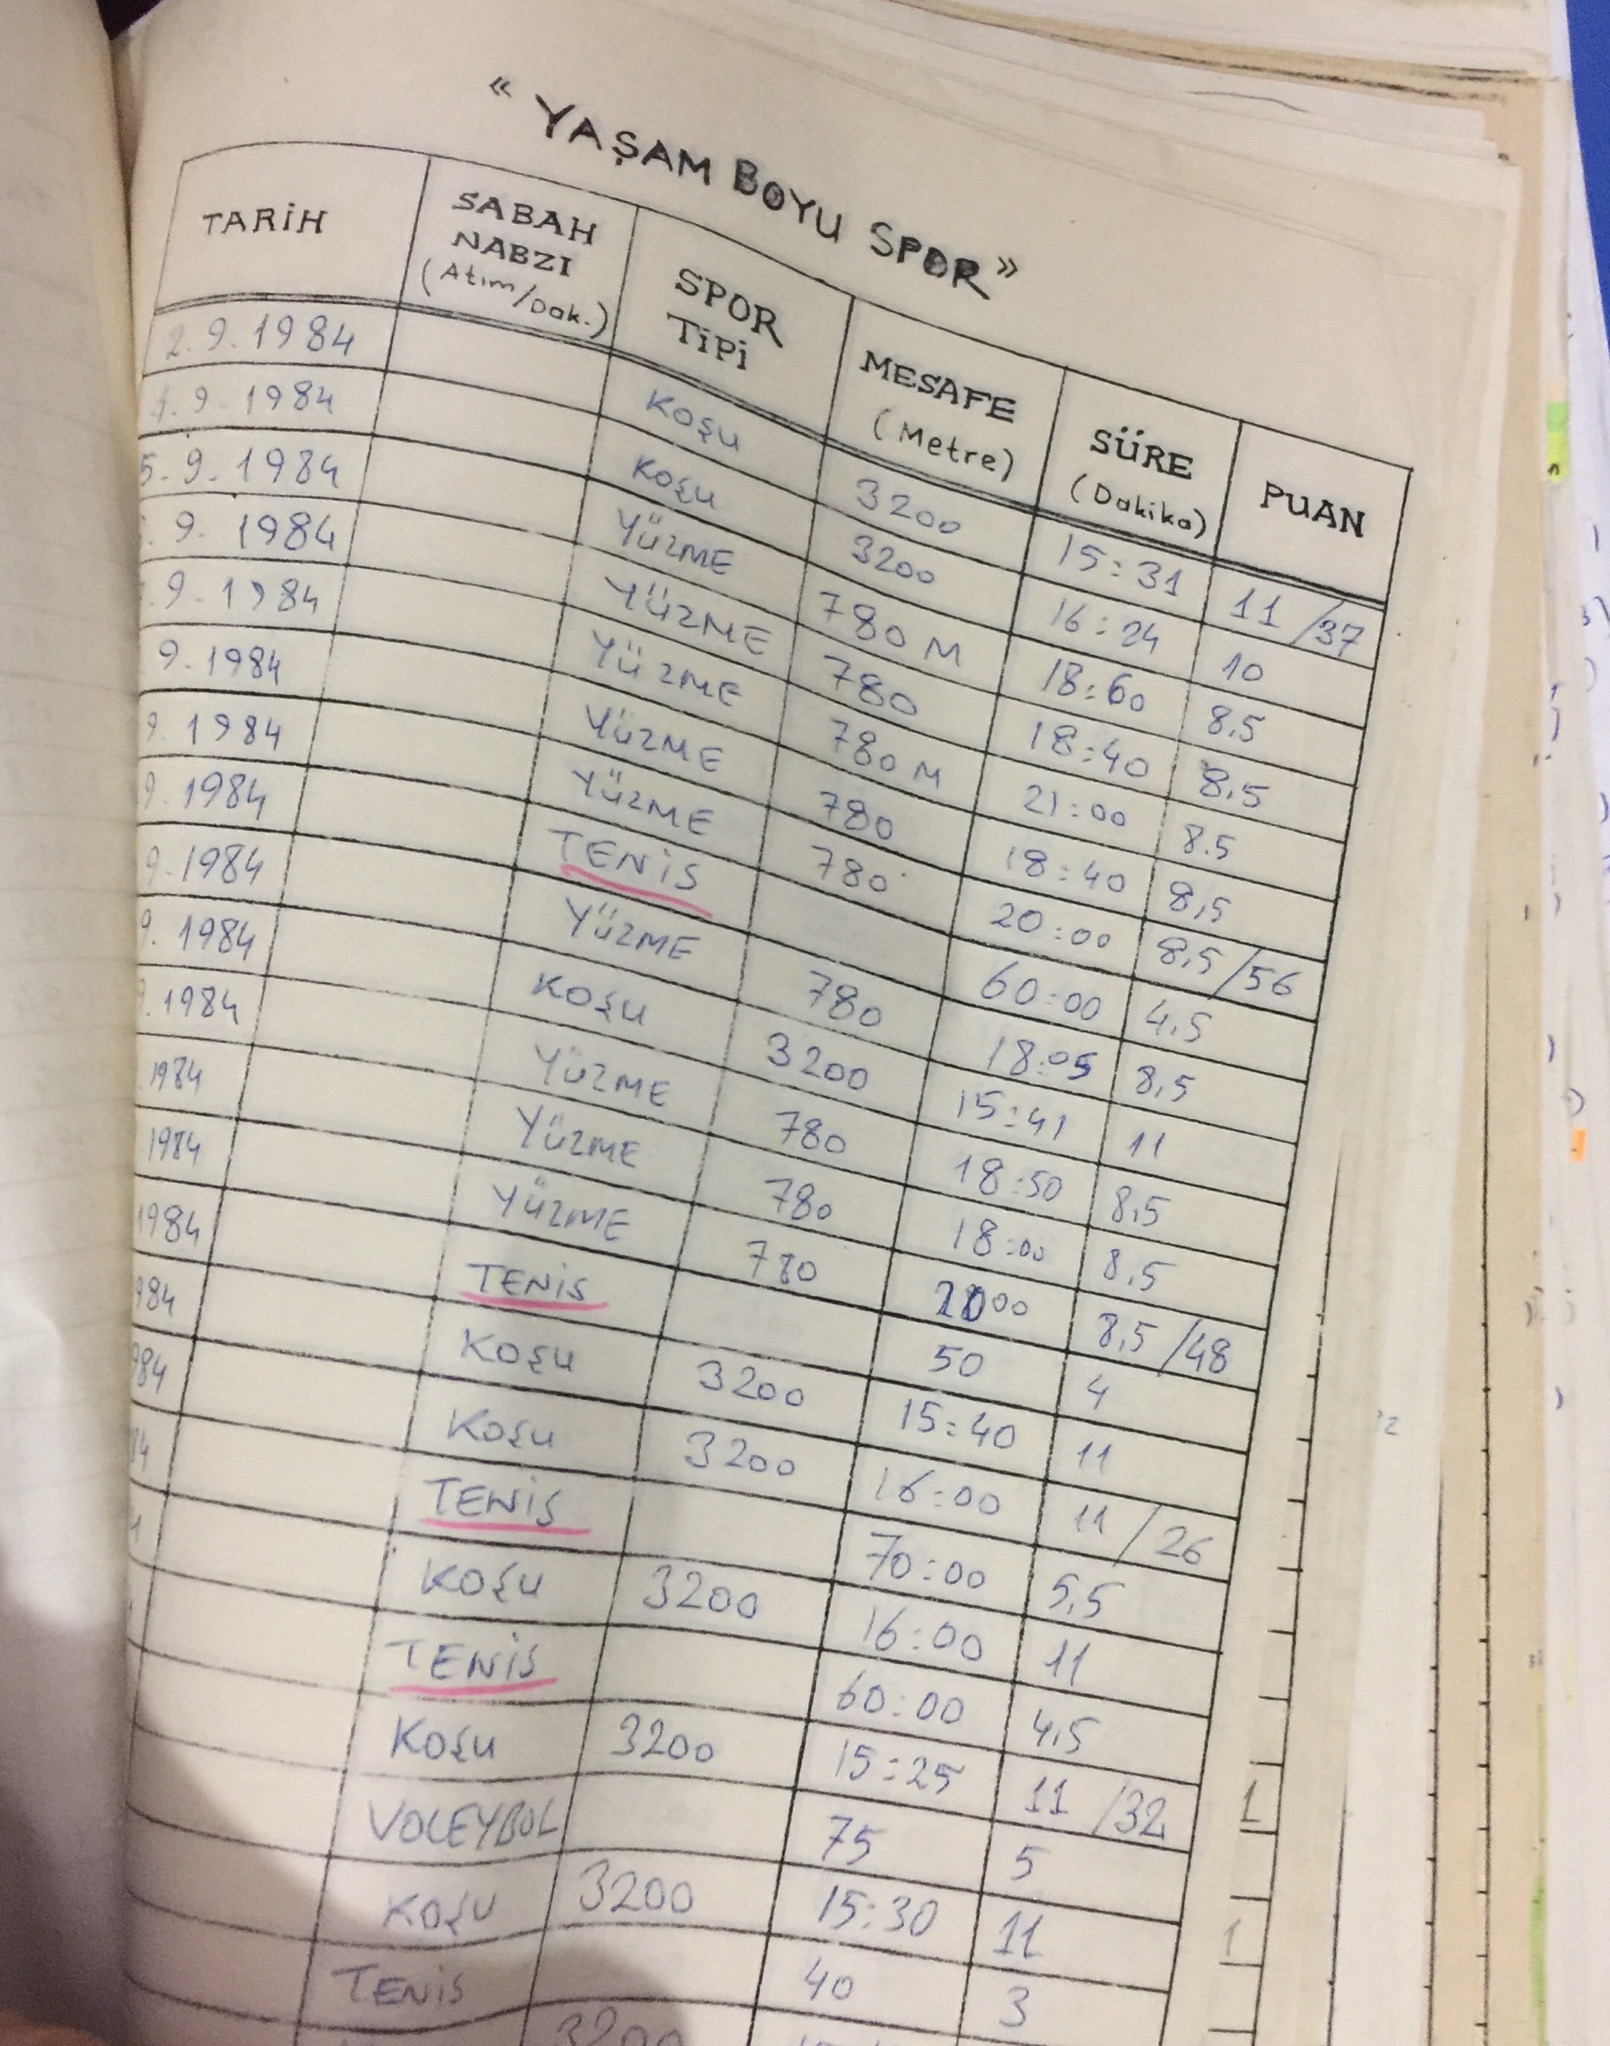 « YAŞAM BOYU SPOR »
TARİH SABAH NABZI (Atım/Dak.) SPOR TİPİ MESAFE (Metre) SÜRE (Dakika) PUAN
2. 9. 1984 Koşu 3200 15:31 11 /37
9. 1984 Koşu 3200 16:24 10
5. 9. 1984 YÜZME 780 M 18:60 8,5
9. 1984 YÜZME 780 18:40 8,5
9. 1984 YÜZME 780 M 21:00 8.5
9. 1984 YÜZME 780 18:40 8,5
9. 1984 YÜZME 780 20:00 8,5 /56
9. 1984 TENİS 60:00 4,5
9. 1984 YÜZME 780 18:05 8,5
9. 1984 Koşu 3200 15:41 11
1984 YÜZME 780 18:50 8,5
1984 YÜZME 780 18:00 8,5
1984 YÜZME 780 00 8,5 /48
1984 TENİS 50 4
984 Koşu 3200 15:40 11
984 Koşu 3200 16:00 11 /26
84 TENİS 70:00 5,5
Koşu 3200 16:00 11
TENİS 60:00 4,5
Koşu 3200 15:25 11 /32
VOLEYBOL 75 5
Koşu 3200 15:30 11
TENİS 40 3
3200